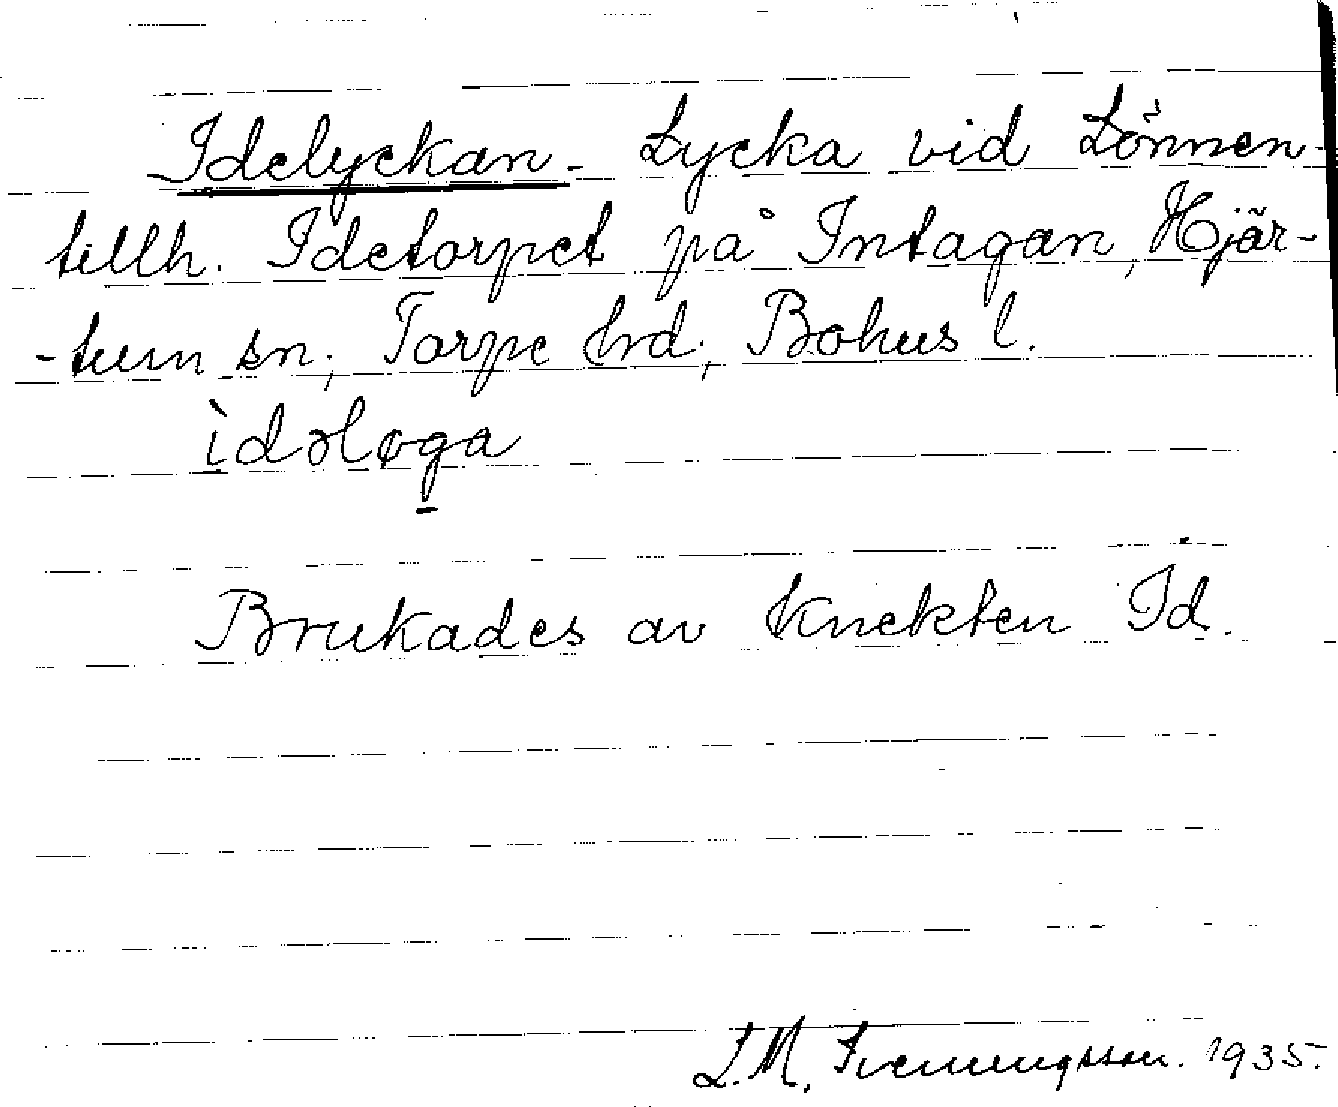 Idelyckan - Lycka vid Lönnen-
tillh. Idetorpet på Intagan, Hjär-
-tum sn; Torpe hrd; Bohus l.
ìdəløga
Brukades av knekten Id.
L.M. 1935.